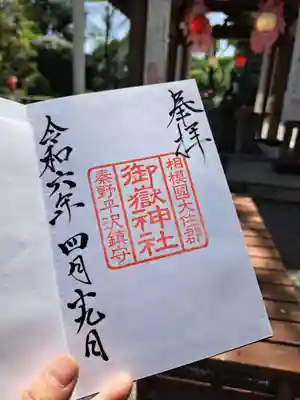 奉拝
相模國大住郡
御嶽神社
秦野平沢鎮守
令和六年四月十九日